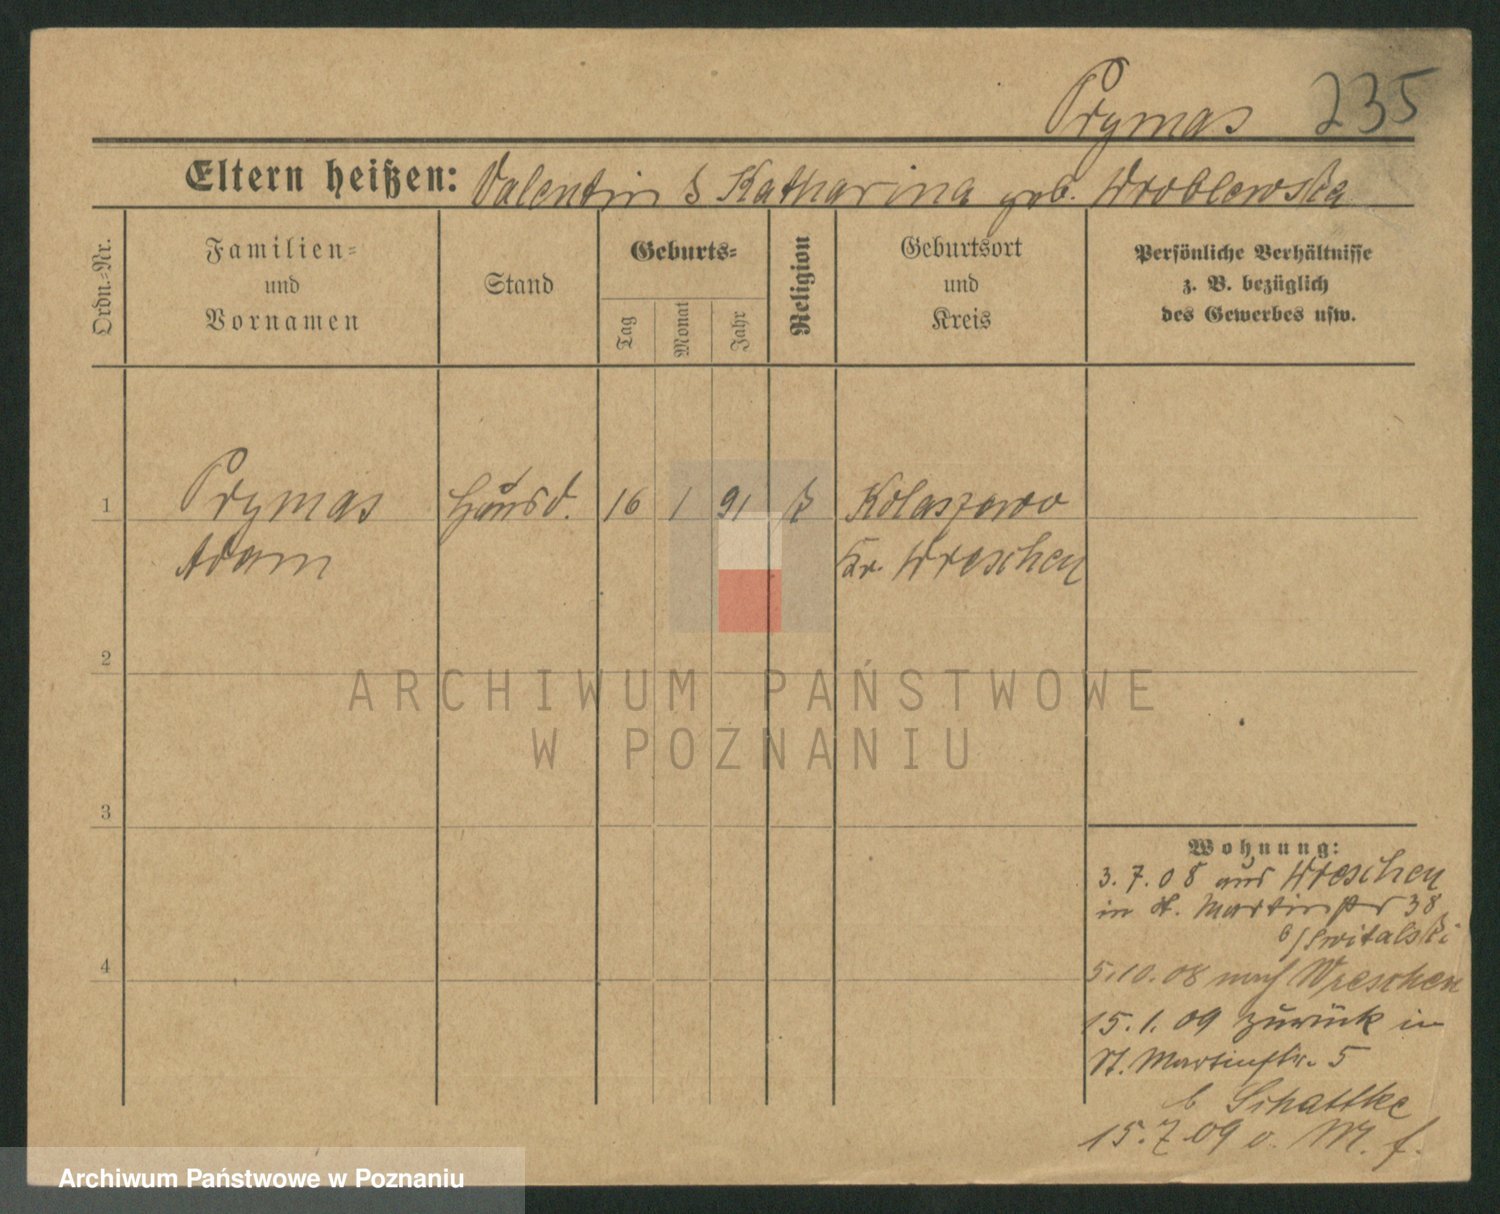 Prymas 235
Eltern heißen: Valentin & Katharina geb. Wroblewska
Ordn.-Nr.
Familien-
und
Vornamen
Stand
Geburts-
Tag
Monat
Jahr
Religion
Geburtsort
und
Kreis
Persönliche Verhältnisse
z. B. bezüglich
des Gewerbes usw.
1 Prymas Hausd. 16 1 91 k Kolaszowo
Adam Kr. Wreschen
2
3
4
Wohnung:
3.7.08 aus Wreschen
in St. Martinstr 38
b/Switalski
5.10.08 nach Wreschen
15.1.09 zurück in
St. Martinstr. 5
b Schattke
15.7.09 o. M. f.
ARCHIWUM PAŃSTWOWE
W POZNANIU
Archiwum Państwowe w Poznaniu